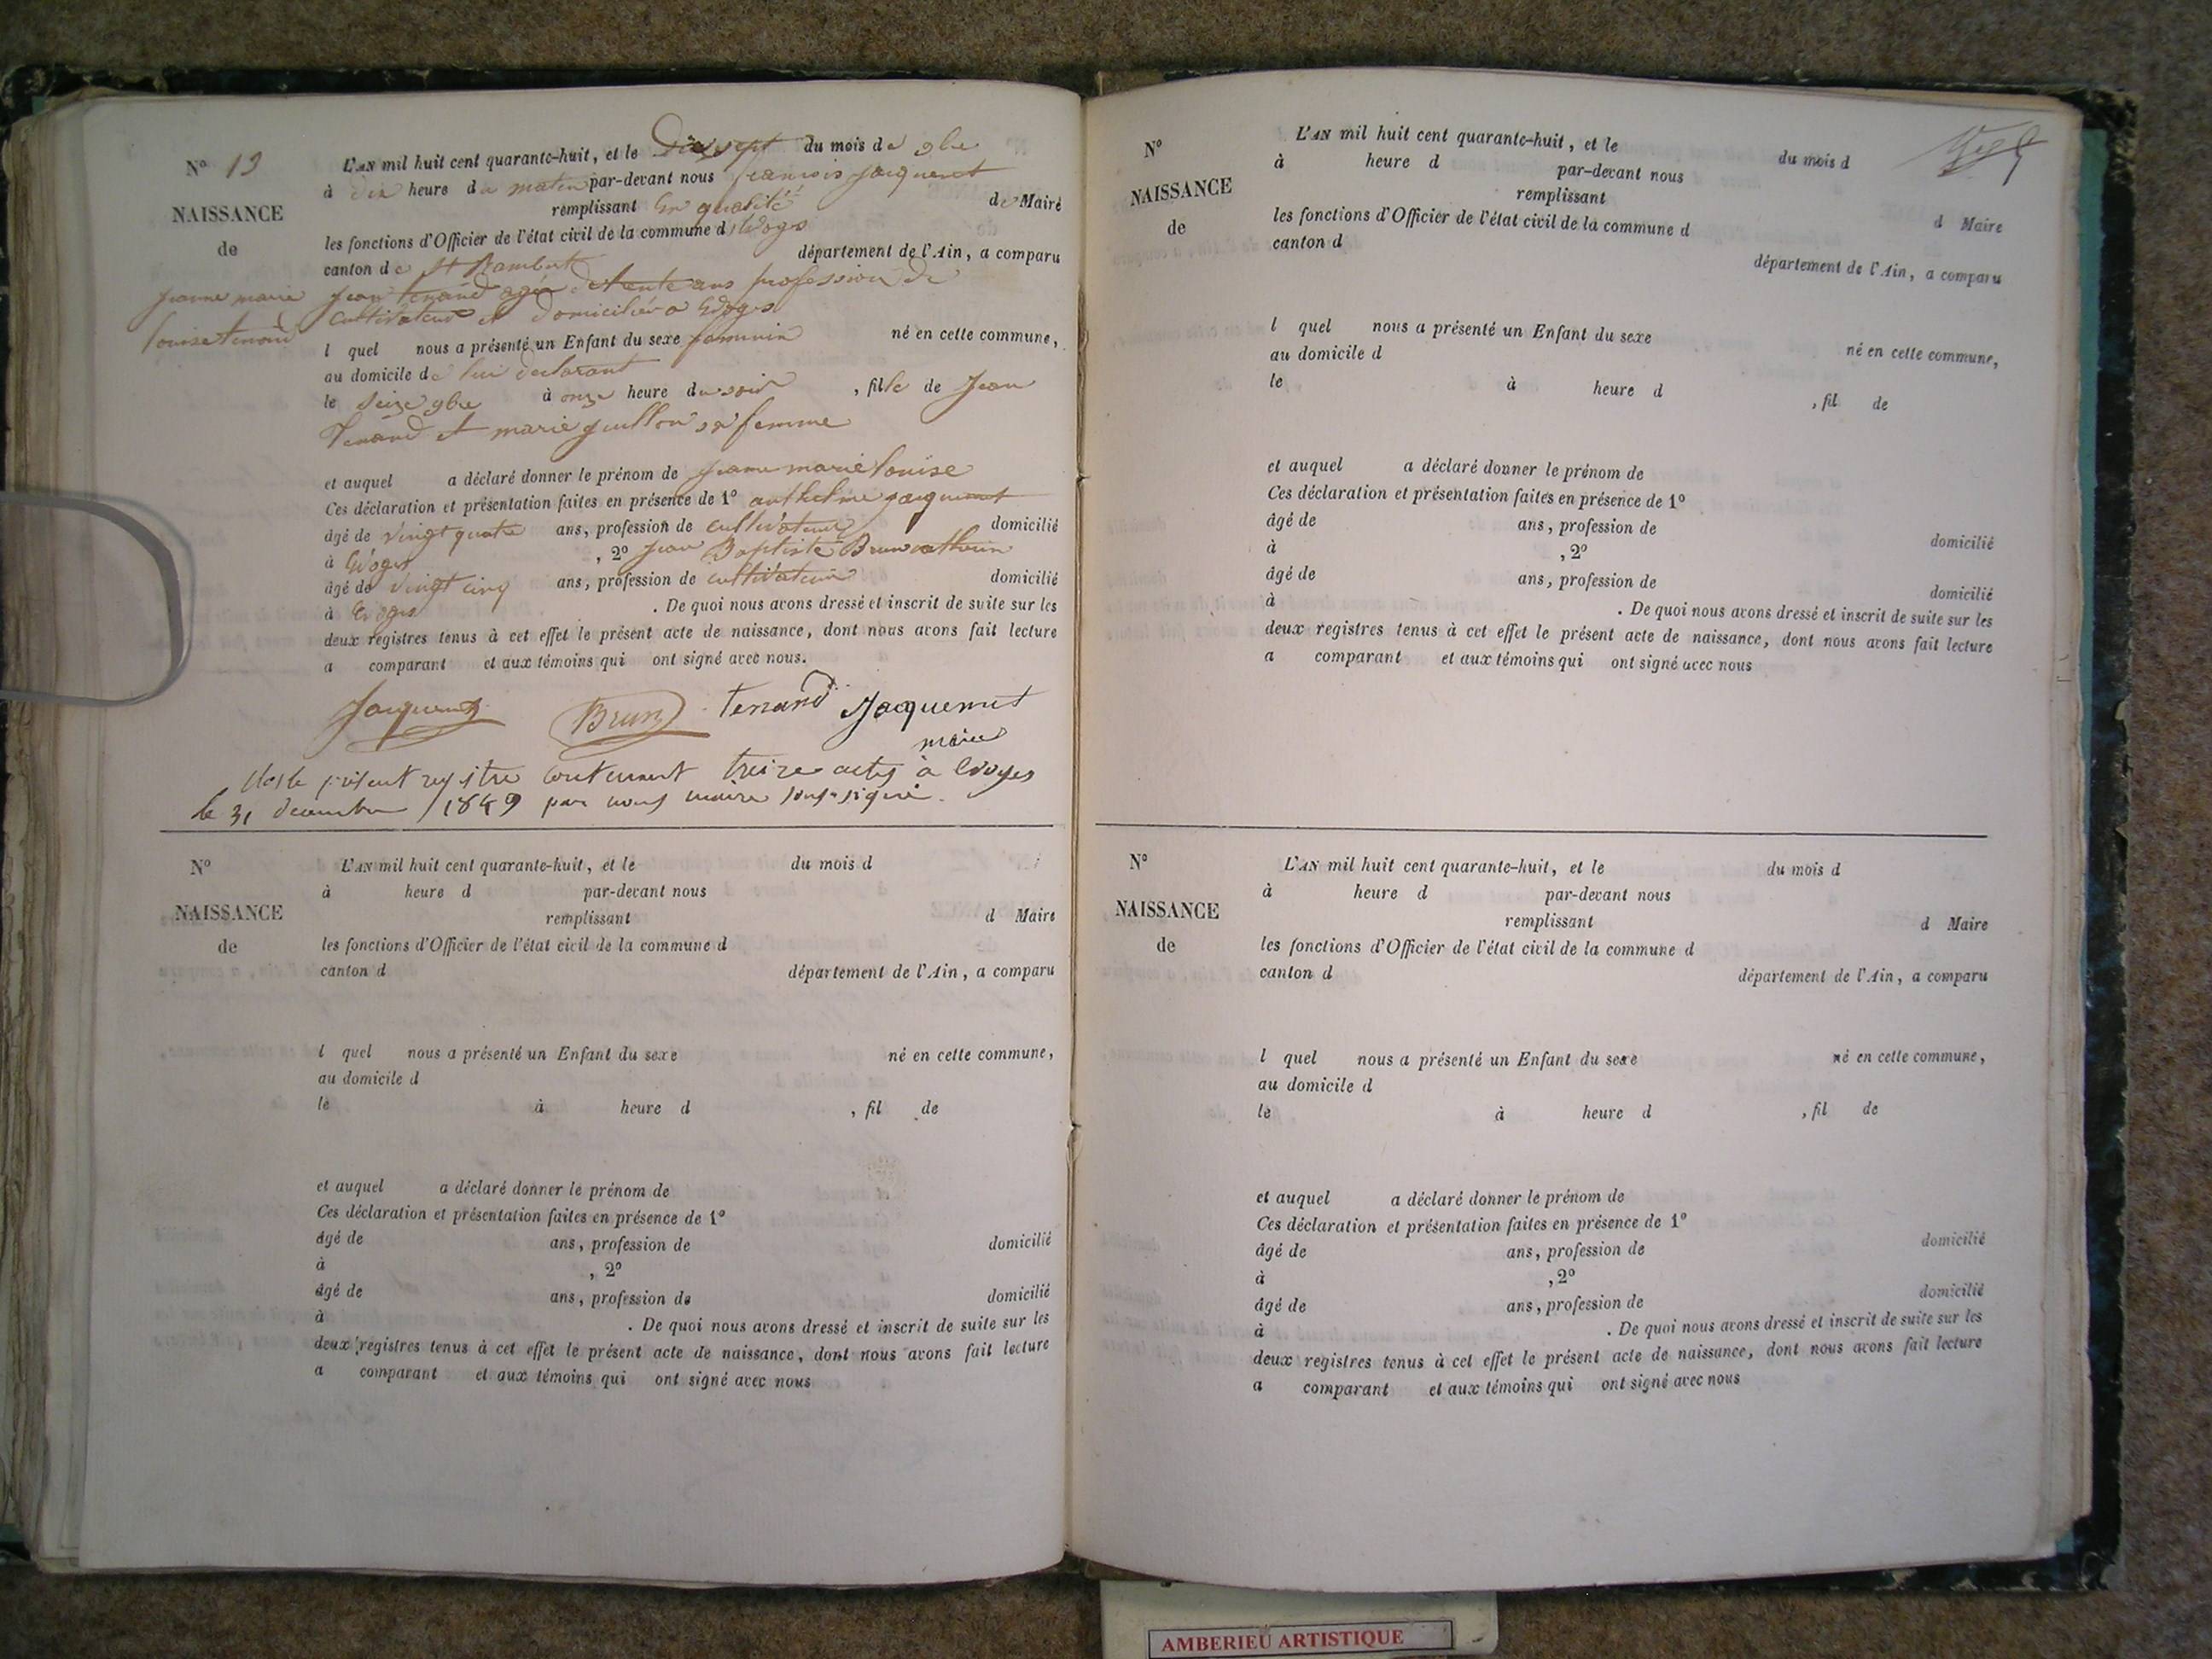 N° 13
NAISSANCE
de
jeanne marie
louise tenand
L'AN mil huit cent quarante-huit, et le Dixsept du mois de 9bre
à dix heure du matin par-devant nous francois jacquemet
remplissant en qualité de Maire
les fonctions d'Officier de l'état civil de la commune d'Evoges
canton de St Rambert département de l'Ain, a comparu
jean tenand agé de trente ans profession de
cultivateur et domicilié a Evoges
l quel nous a présenté un Enfant du sexe feminin né en cette commune,
au domicile de lui declarant
le seize 9bre à onze heure du soir, fille de jean
Tenand et marie juillon sa femme
et auquel a déclaré donner le prénom de jeanne marie louise
Ces déclaration et présentation faites en présence de 1° anthelme jacquemet
âgé de vingt quatre ans, profession de cultivateur domicilié
à Evoges, 2° jean Baptiste Brun
âgé de vingt cinq ans, profession de cultivateur domicilié
à Evoges. De quoi nous avons dressé et inscrit de suite sur les
deux registres tenus à cet effet le présent acte de naissance, dont nous avons fait lecture
a comparant et aux témoins qui ont signé avec nous.
Jacquemet Brun tenand Jacquemet
maire
Clos le présent registre contenant treize actes à Evoges
le 31 decembre 1849 par nous maire soussigné.
N°
NAISSANCE
de
L'AN mil huit cent quarante-huit, et le du mois d
à heure d par-devant nous
remplissant d Maire
les fonctions d'Officier de l'état civil de la commune d
canton d département de l'Ain, a comparu
l quel nous a présenté un Enfant du sexe né en cette commune,
au domicile d
le à heure d , fil de
et auquel a déclaré donner le prénom de
Ces déclaration et présentation faites en présence de 1°
âgé de ans, profession de domicilié
à , 2°
âgé de ans, profession de domicilié
à . De quoi nous avons dressé et inscrit de suite sur les
deux registres tenus à cet effet le présent acte de naissance, dont nous avons fait lecture
a comparant et aux témoins qui ont signé avec nous
N°
NAISSANCE
de
L'AN mil huit cent quarante-huit, et le du mois d
à heure d par-devant nous
remplissant d Maire
les fonctions d'Officier de l'état civil de la commune d
canton d département de l'Ain, a comparu
l quel nous a présenté un Enfant du sexe né en cette commune,
au domicile d
le à heure d , fil de
et auquel a déclaré donner le prénom de
Ces déclaration et présentation faites en présence de 1°
âgé de ans, profession de domicilié
à , 2°
âgé de ans, profession de domicilié
à . De quoi nous avons dressé et inscrit de suite sur les
deux registres tenus à cet effet le présent acte de naissance, dont nous avons fait lecture
a comparant et aux témoins qui ont signé avec nous
N°
NAISSANCE
de
L'AN mil huit cent quarante-huit, et le du mois d
à heure d par-devant nous
remplissant d Maire
les fonctions d'Officier de l'état civil de la commune d
canton d département de l'Ain, a comparu
l quel nous a présenté un Enfant du sexe né en cette commune,
au domicile d
le à heure d , fil de
et auquel a déclaré donner le prénom de
Ces déclaration et présentation faites en présence de 1°
âgé de ans, profession de domicilié
à , 2°
âgé de ans, profession de domicilié
à . De quoi nous avons dressé et inscrit de suite sur les
deux registres tenus à cet effet le présent acte de naissance, dont nous avons fait lecture
a comparant et aux témoins qui ont signé avec nous
AMBERIEU ARTISTIQUE